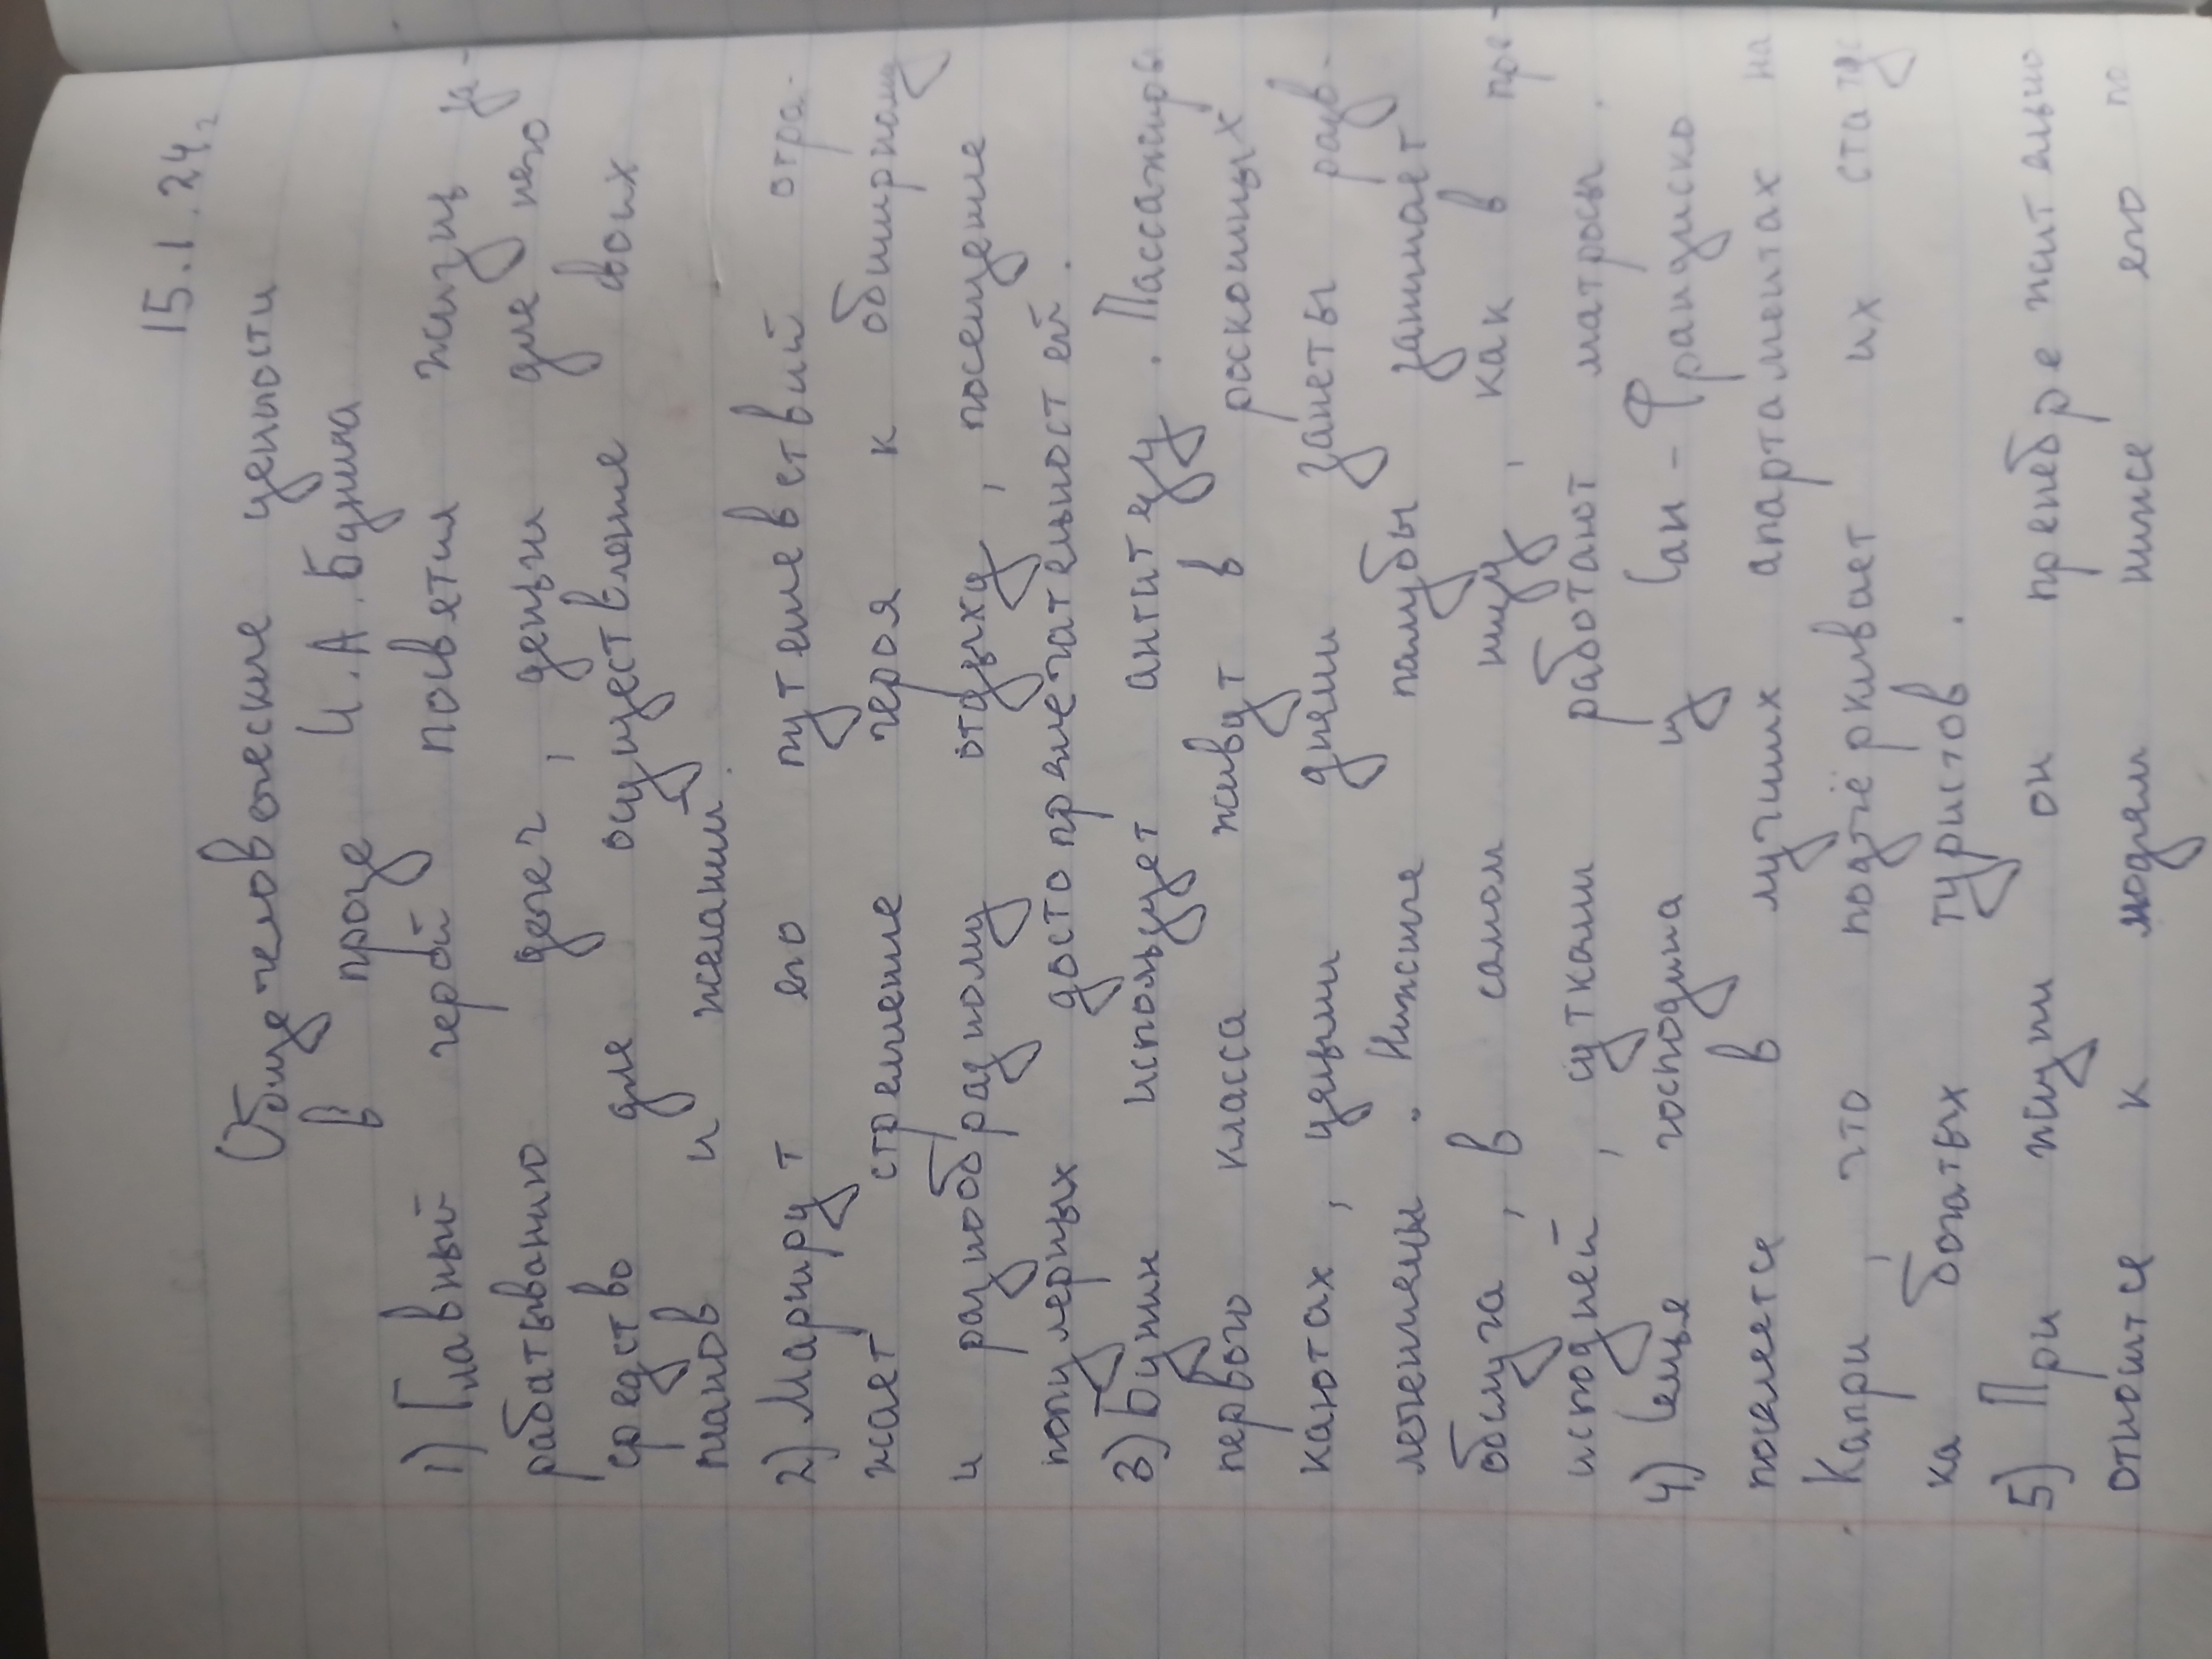 15.1.24г
Общечеловеческие ценности
в прозе И.А.Бунина
1) Главный герой посвятил жизнь за-
рабатыванию денег, деньги для него
средство для осуществления своих
планов и желаний.
2) Маршрут его путешествий отра-
жает стремление героя к обширному
и разнообразному отдыху, посещение
популярных достопримечательностей.
3) Бунин использует антитезу. Пассажиры
первого класса живут в роскошных
каютах, целыми днями заняты разв-
лечениями. Нижние палубы занимает
обслуга, в самом низу, как в пре-
исподней, сутками работают матросы.
4) Семья господина из Сан-Франциско
поселяется в лучших апартаментах на
Капри, что подчёркивает их статус
ка богатых туристов.
5) При жизни он пренебрежительно
относится к людям ниже его по